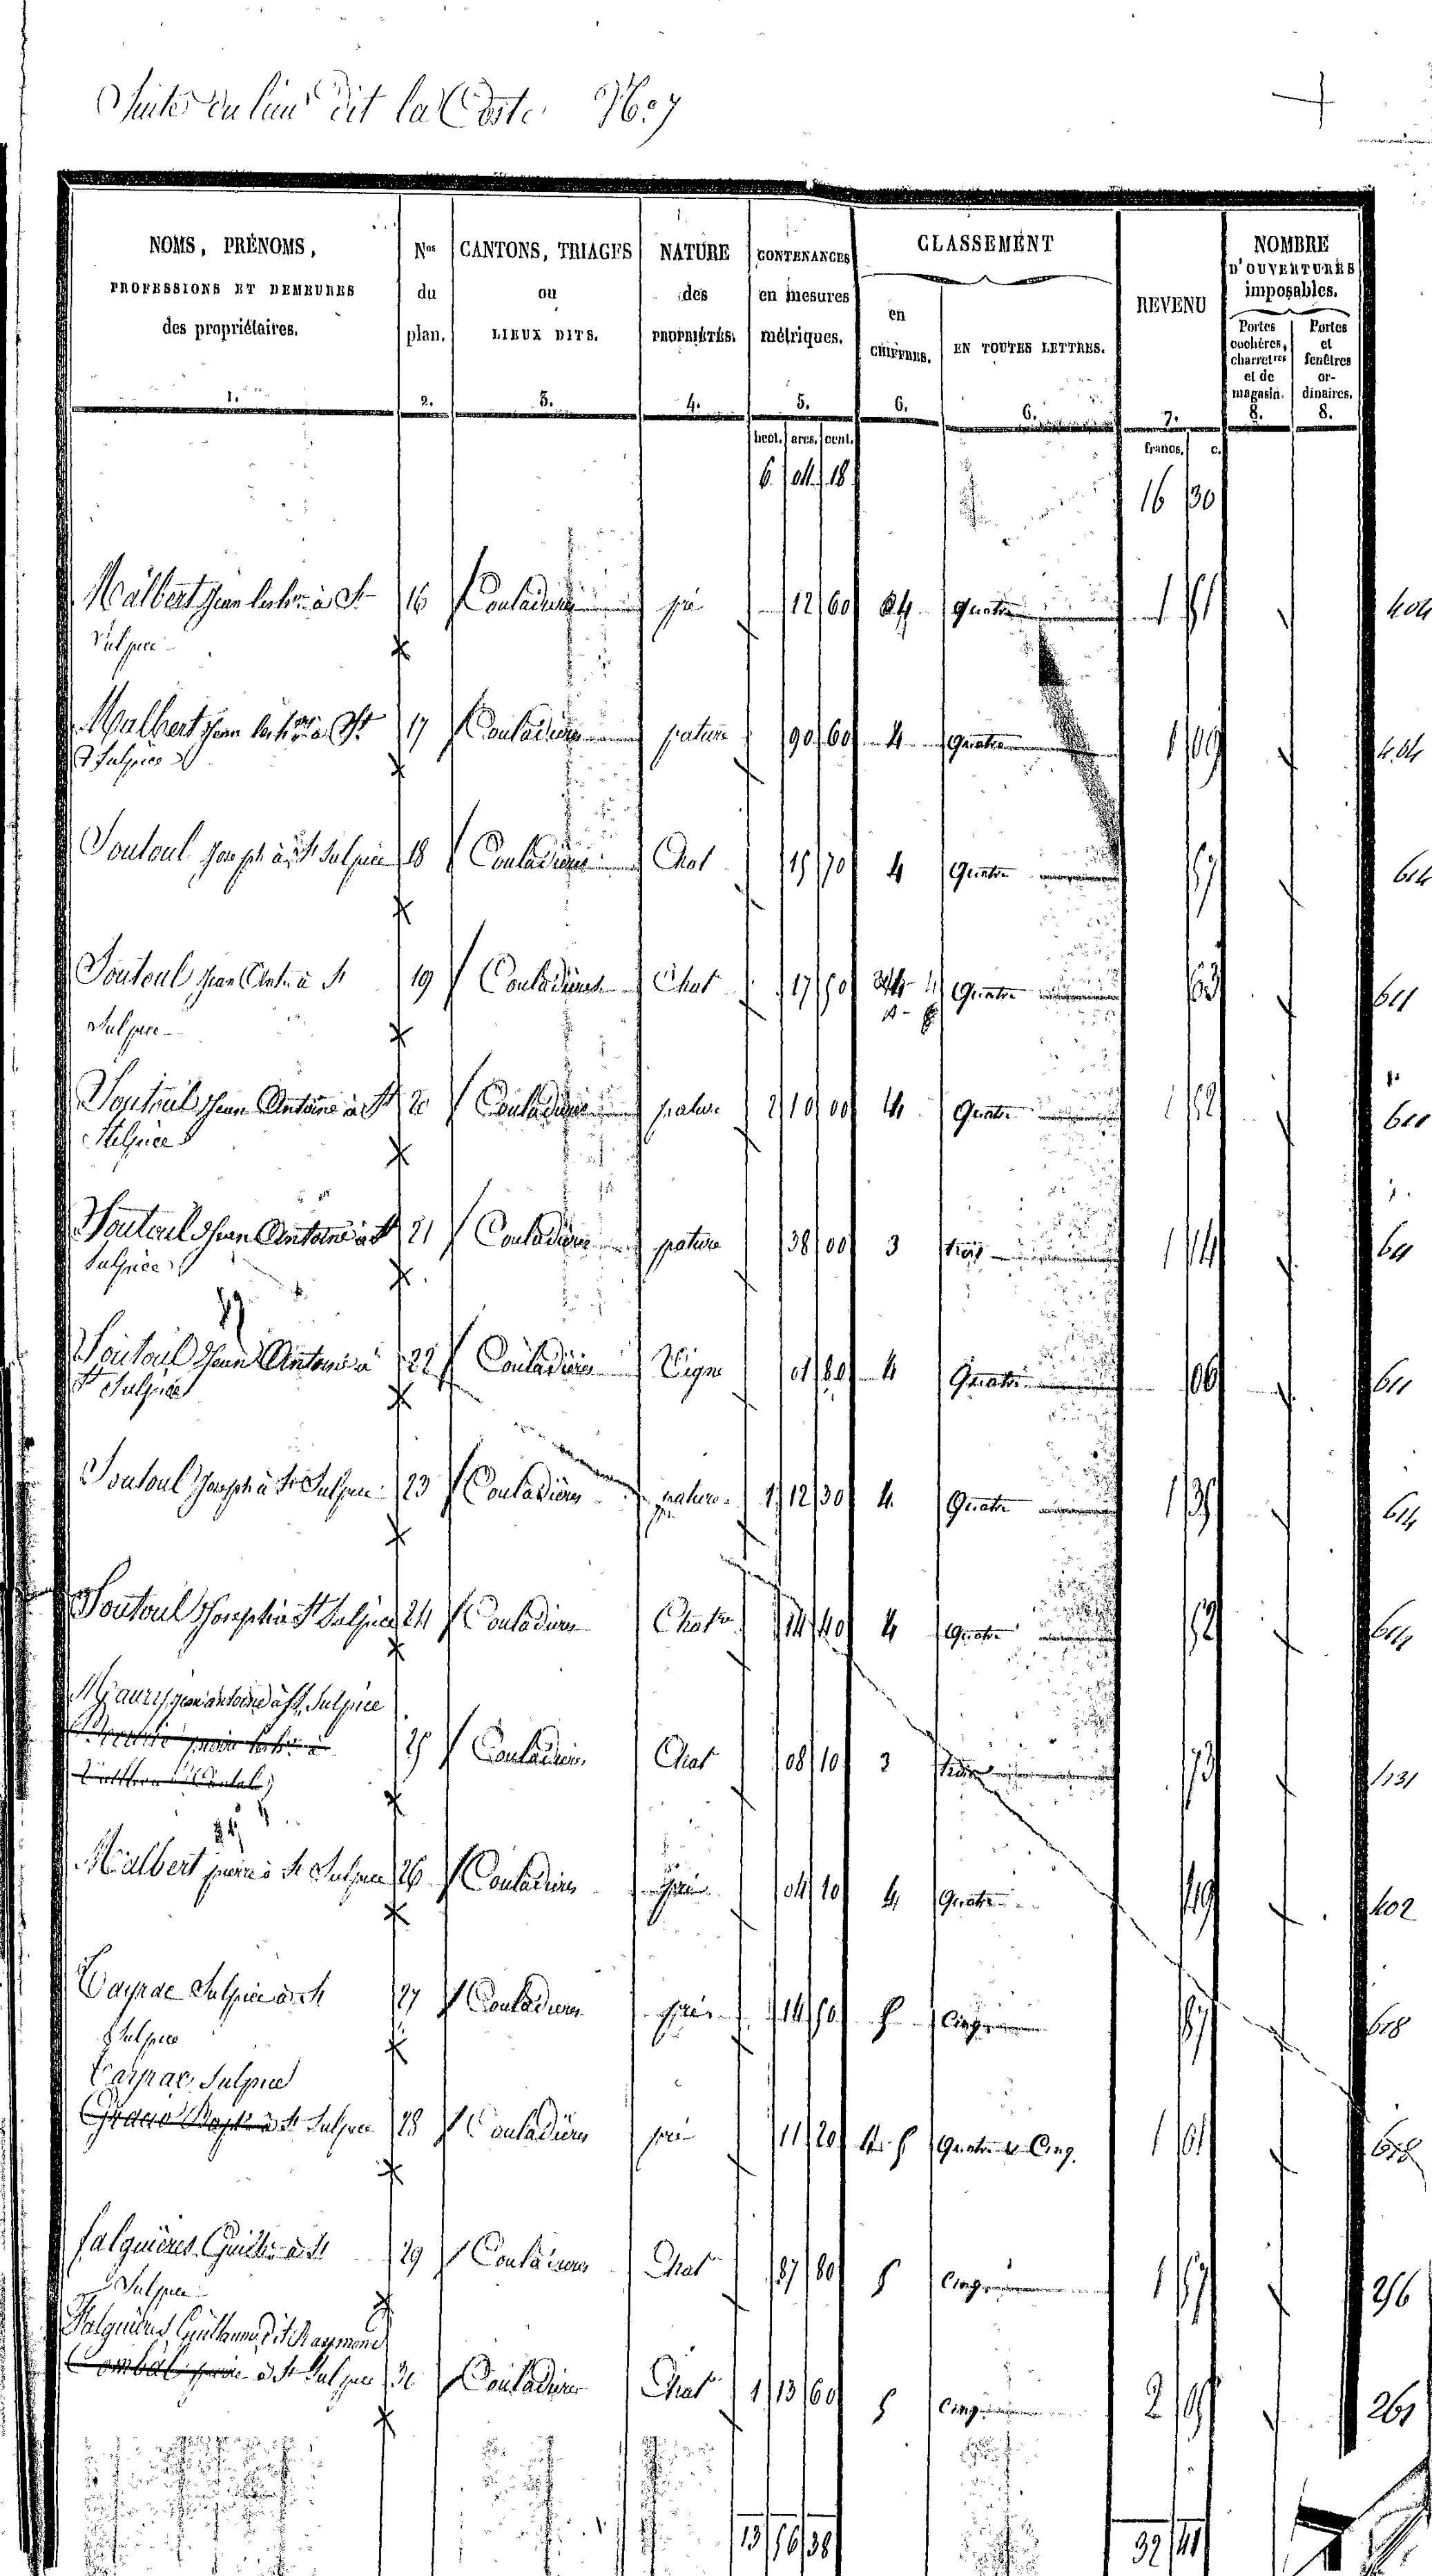 Suite du lieu dit la Coste No 7
NOMS, PRÉNOMS, PROFESSIONS ET DEMEURES des propriétaires. 1.
Nos du plan. 2.
CANTONS, TRIAGES ou LIEUX DITS. 3.
NATURE des PROPRIÉTÉS. 4.
CONTENANCES en mesures métriques. 5.
CLASSEMENT
en CHIFFRES. 6.
EN TOUTES LETTRES. 6.
REVENU 7.
NOMBRE D'OUVERTURES imposables.
Portes cochères, charretres et de magasin. 8.
Portes et fenêtres ordinaires. 8.
hect. ares. cent. francs. c.
6 04 18 16 30
Malbert Jean à St 16 Couladières pré 12 60 4 Quatre 1 51 404
Sulpice
Malbert Jean à St 17 Couladières pature 90 60 4 Quatre 1 09 404
Sulpice
Soutoul Joseph à St Sulpice 18 Couladières Chat 15 70 4 Quatre 57 614
Soutoul Jean Ant. à St 19 Couladières Chat 17 50 4 Quatre 63 611
Sulpice
Soutoul Jean Antoine à St 20 Couladières pature 2 10 00 4 Quatre 2 52 611
Sulpice
Soutoul Jean Antoine à St 21 Couladières pature 38 00 3 trois 1 14 611
Sulpice
Soutoul Jean Antoine à 22 Couladières Vigne 01 80 4 Quatre 06 611
St Sulpice
Soutoul Joseph à St Sulpice 23 Couladières pature 1 12 30 4 Quatre 1 35 614
Soutoul Joseph à St Sulpice 24 Couladières Chat 14 40 4 Quatre 52 614
Maury Jean antoine à St Sulpice
25 Couladières Chat 08 10 3 trois 73 1131
Malbert pierre à St Sulpice 26 Couladières pré 04 10 4 Quatre 49 402
Cayrac Sulpice à St 27 Couladières pré 14 50 5 Cinq 87 618
Sulpice
Cayrac Sulpice
à St Sulpice 28 Couladières pré 11 20 4 5 Quatre & Cinq 1 01 618
falguières Guille à St 29 Couladières Chat 87 80 5 Cinq 1 57 256
Sulpice
Falguières Guillaume dit Raymond
Combal pierre à St Sulpice 30 Couladières Chat 1 13 60 5 Cinq 2 05 261
13 56 38 32 41